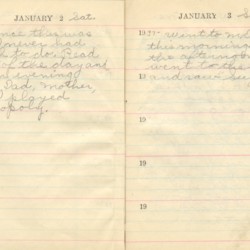 JANUARY 2 Sat.
nce ther was
onever had
to do. Read
of the day and
evening
Dad, Mother,
played
opoly.
JANUARY 3 S
19 went to
this morning
the afternoon
went to the
and saw
19
19
19
19